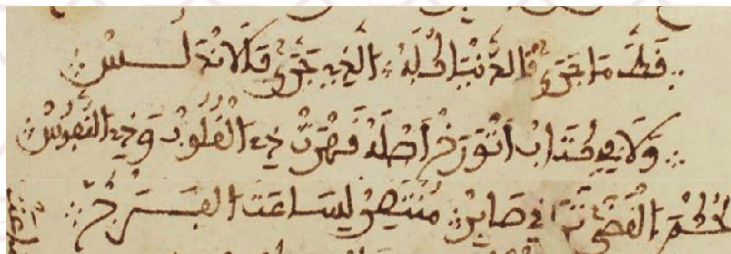 قط ما جرى فالدنيا كله الذي جرى فلاندلس
ولا في كتاب اتورخ اصله قهرت في القلوب وفي النفوس
لحكم القضى ترا ني صابر منتصر لساعت الفرج